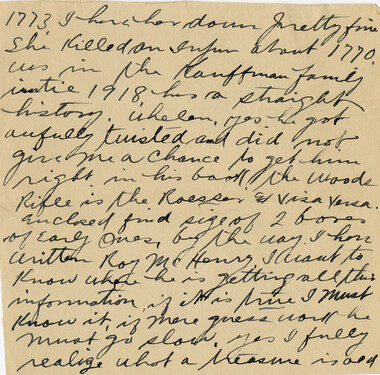 1773, I have her down pretty fine
She killed an Injun about 1770.
was in the Kauffman family
until 1918 has a straight
history. Whelen, yes he got
awfully twisted and did not
give me a chance to get him
right in his book, the Woods
Rifle is the Roesser & Visa Versa.
Enclosed find size of 2 bores
of Early Ones, by the way. I have
written Roy McHenry, I want to
Know where he is getting all this
information, if it is true I must
Know it, if mere guess work he
must go slow. yes I fully
realize what a treasure is old